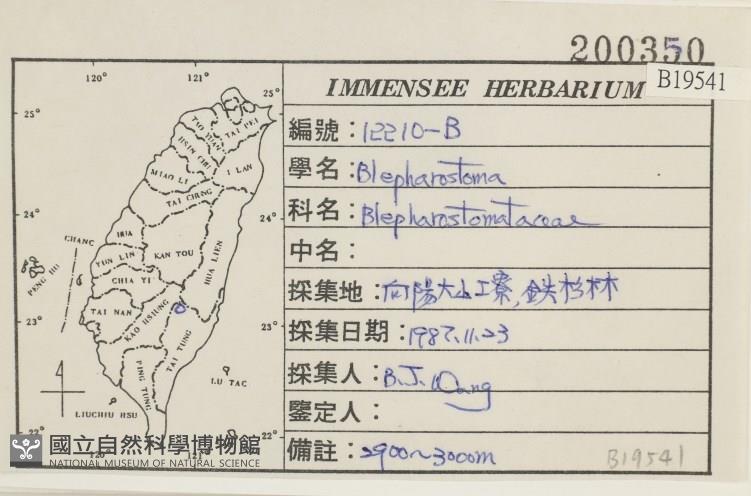 200350
IMMENSEE HERBARIUM
B19541
編號：12210-B
學名：Blepharostoma
科名：Blepharostomataceae
中名：
採集地：向陽大山工寮,鉄杉林
採集日期：1987.11.23
採集人：B.J. Wang
鑒定人：
備註：2900~3000m
B19541
120°
121°
25°
25°
TAO YUAN
TAI PEI
HSIN CHU
I LAN
MIAO LI
TAI CHUNG
24°
24°
CHANG
HUA
YUN LIN
NAN TOU
HUA LIEN
PENG HU
CHIA YI
TAI NAN
KAO HSIUNG
23°
23°
TAI TUNG
PING TUNG
LU TAO
LIUCHIU HSU
22°
22°
120°
121°
國立自然科學博物館
NATIONAL MUSEUM OF NATURAL SCIENCE